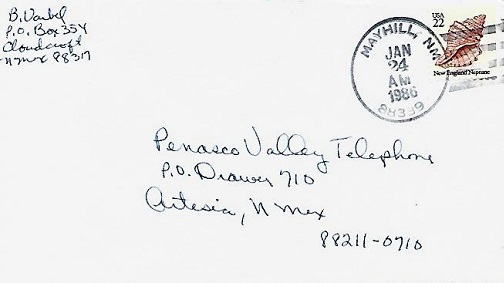 B. Varbel
P.O. Box 354
Cloudcroft
N Mex 88317
MAYHILL, NM
JAN
24
AM
1986
88339
USA
22
New England Neptune
Penasco Valley Telephone
P.O. Drawer 710
Artesia, N Mex
88211-0710